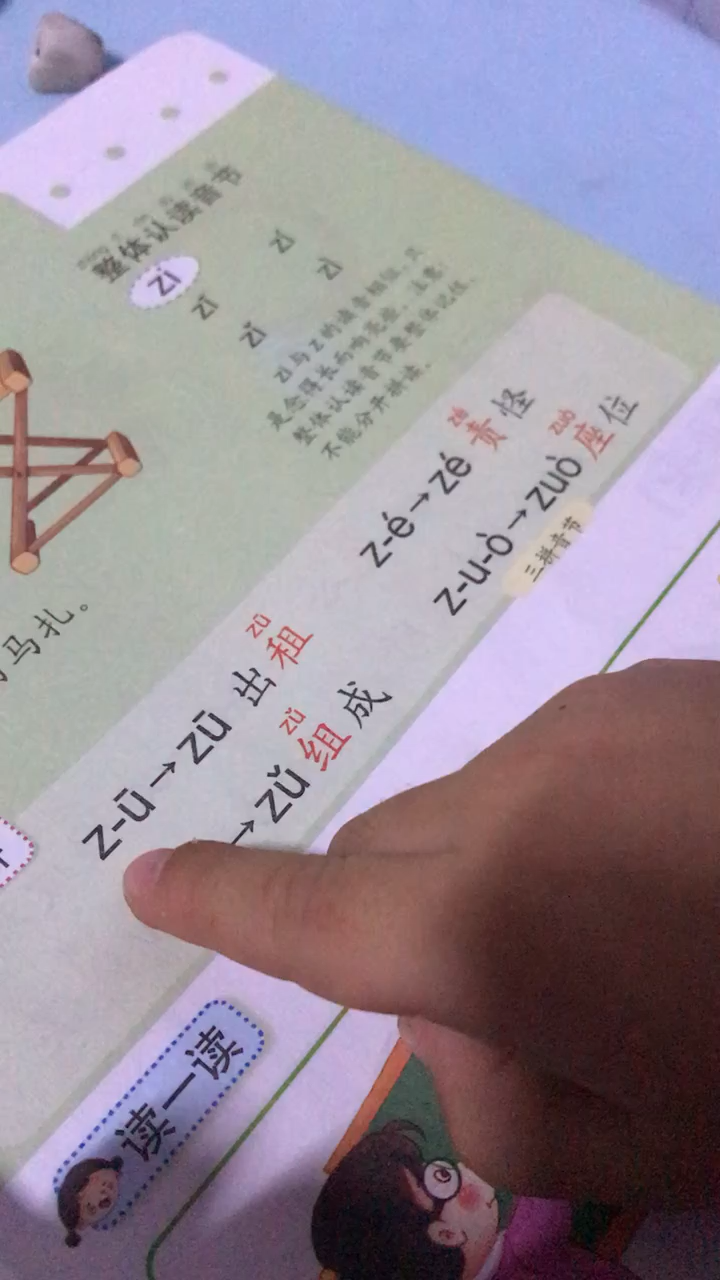 整体认读音节
zi
zī zí
zǐ zì
zi与z的读音相似，只
是念得长而响亮些。注意：
整体认读音节要整体记住，
不能分开拼读。
马扎。
z-ū→zū 出租 zū
→zǔ 组成 zǔ
z-é→zé 责怪 zé
z-u-ò→zuò 座位 zuò
三拼音节
读一读